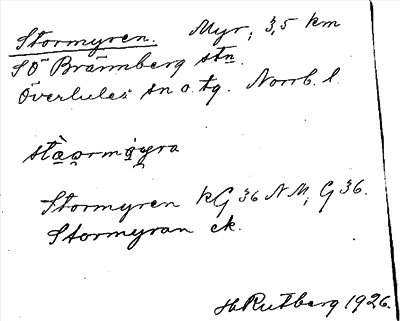 Stormyren. Myr, 3,5 km
SÖ Brännberg stn.
Överluleå sn o. tg. Norrb. l.
Stormyren kG 36 NM, G 36.
Stormyran ek.
H Rutberg 1926.